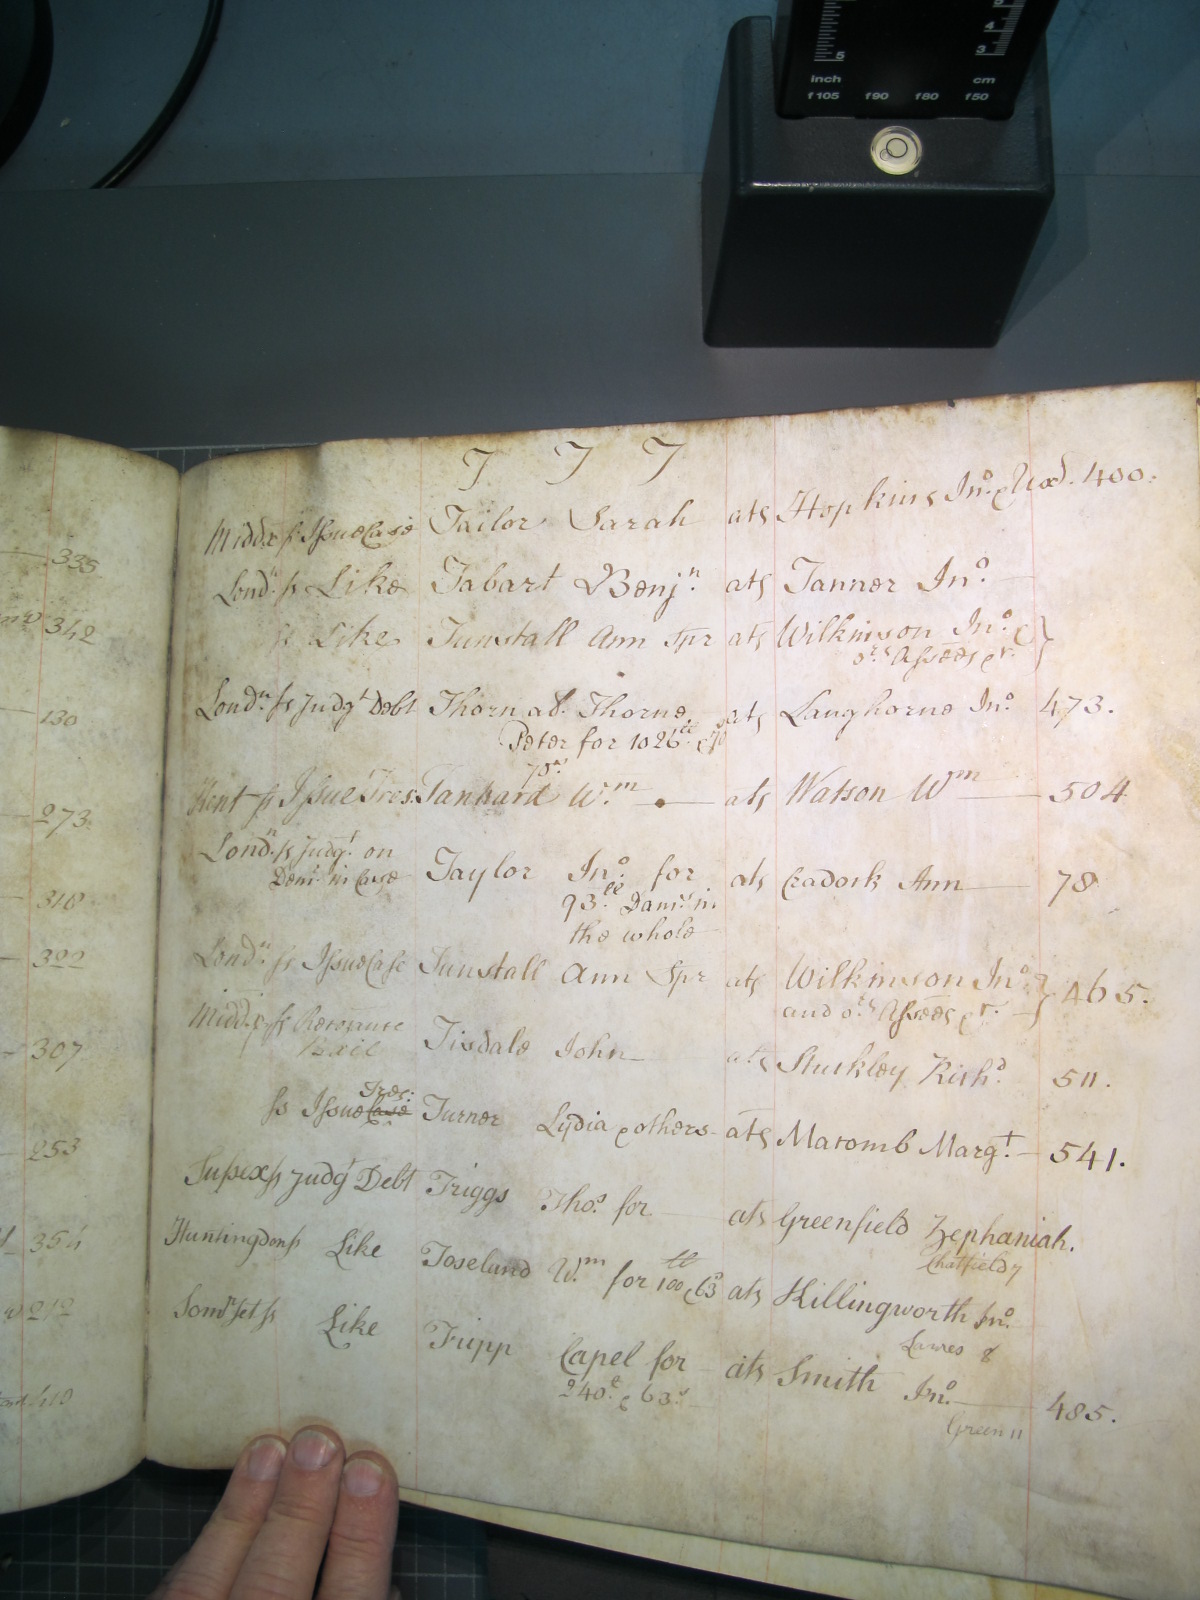 5 4 3
inch cm
f105 f90 f80 f50
T T T
Middx ss Issue Case Tailor Sarah ats Hopkins Jno. & Uxd. 400.
Lond.n ss Like Tabart Benj.n ats Tanner Jno.
ss Like Tunstall Ann Spr ats Wilkinson Jno. & }
o.rs Assees &c.
Lond.n ss Judgt Debt Thorn als. Thorne ats Langhorne Jno. 473.
Peter for 1026.ll & 70s
70s.
Kent ss Issue Tres. Tanhard Wm. ats Watson Wm 504
Lond.n ss Judgt. on Taylor Jno. for ats Cradock Ann 78
Dem.r in Case 93.ll Dam.s in
the whole
Lond.n ss Issue Case Tunstall Ann Spr ats Wilkinson Jno. } 465.
and o.rs Assees &c.
Middx ss Tisdale John ats Stuckley Richd. 511.
Bail
Tres:
ss Issue Case Turner Lydia & others ats Macomb Margt. 541.
Sussex ss Judgt Debt Triggs Thos. for ats Greenfield Zephaniah.
Chatfield 7
Huntingdon ss Like Toselund Wm. for 100ll & 63s ats Killingworth Jno.
Lawes 8
Somerset ss Like Tripp Capel for ats Smith Jno. 485.
240.ll & 63.s
Green 11
335
342
130
273
310
322
307
253
354
212
410